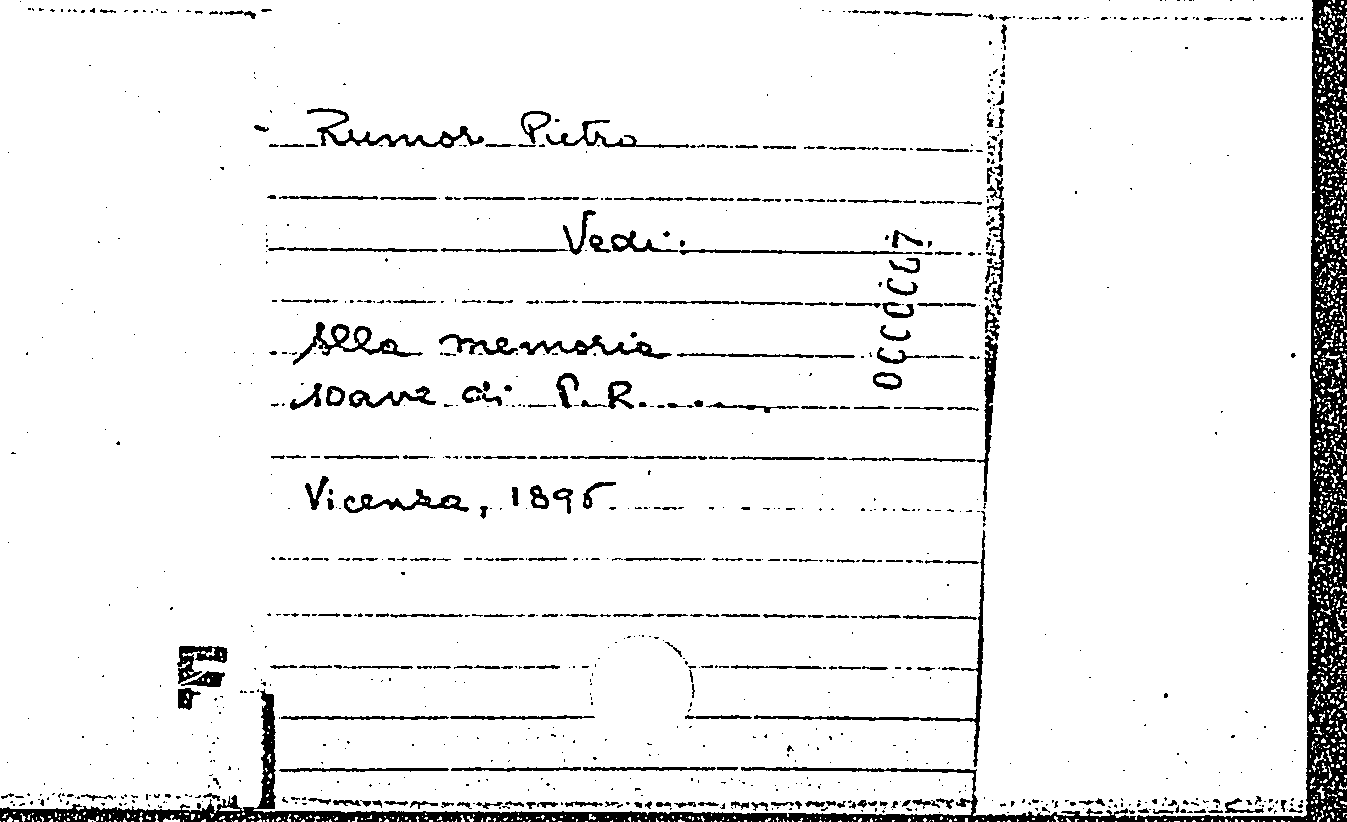 Rumor Pietro
Vedi:
Alla memoria
soave di P.R.......
Vicenza, 1896